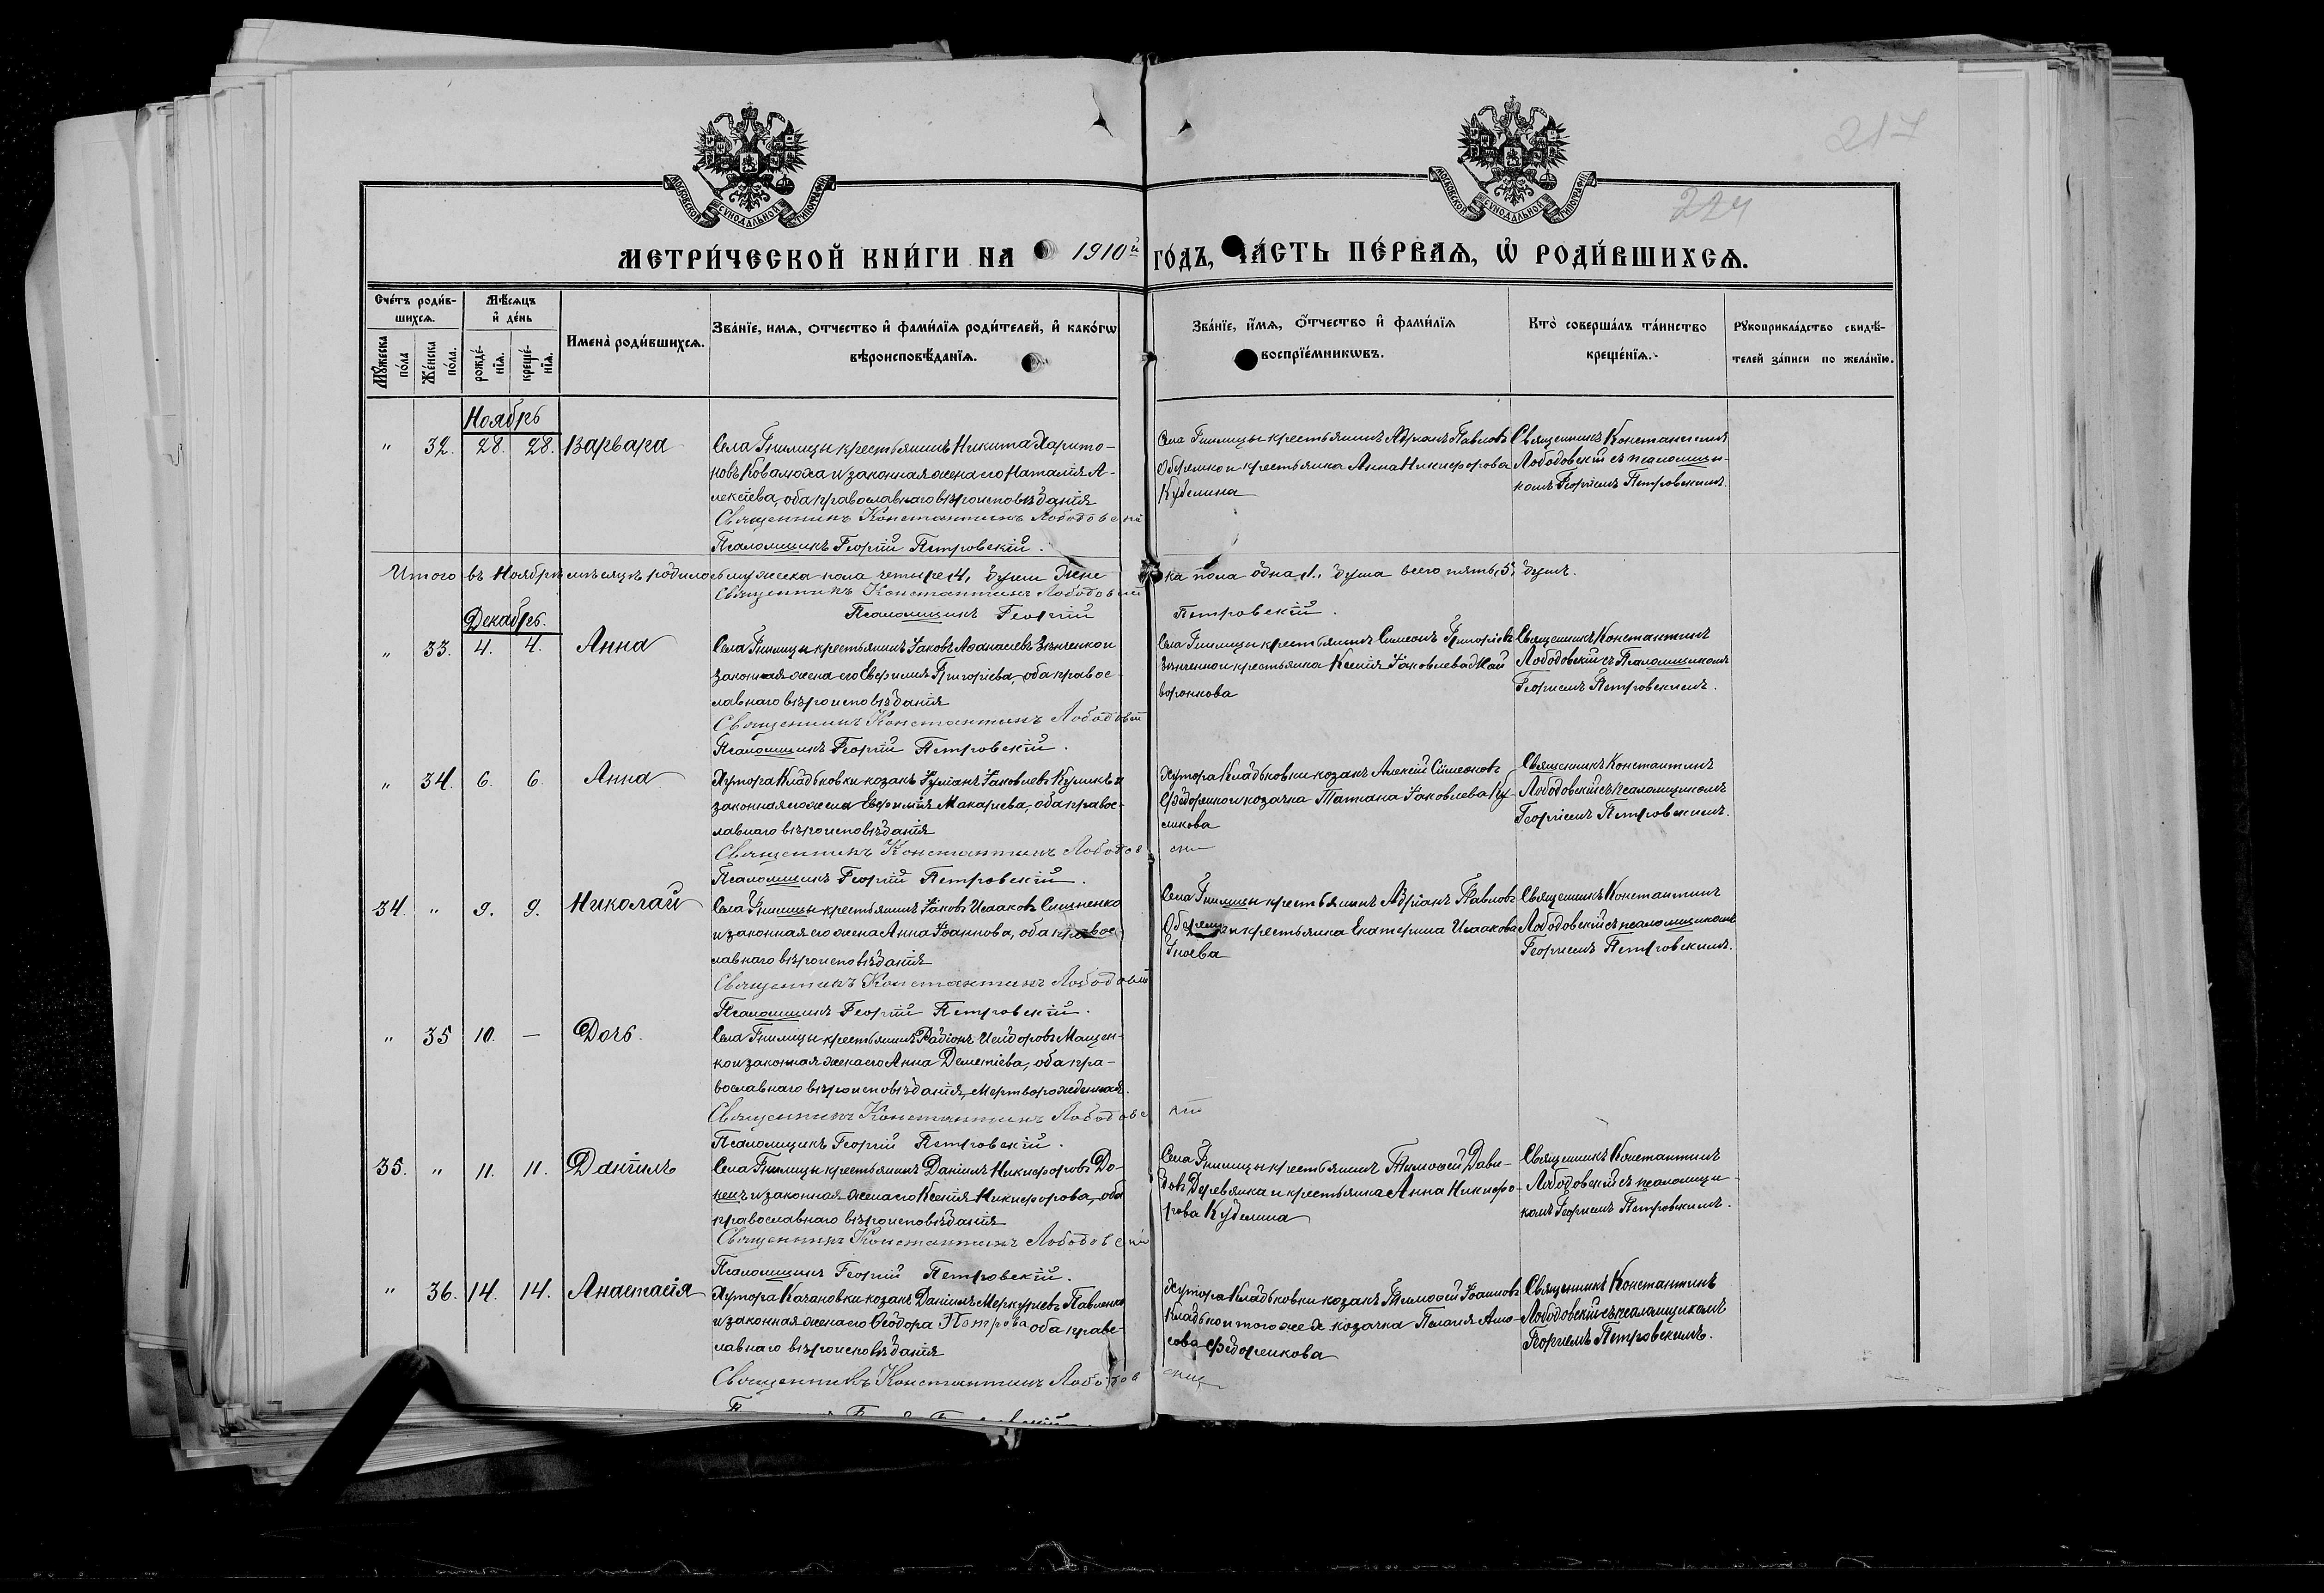 217
224
МОСКОВСКОЙ СУНОДАЛЬНОЙ ТИПОГРАФІИ
МОСКОВСКОЙ СУНОДАЛЬНОЙ ТИПОГРАФІИ
МЕТРИ́ЧЕСКОЙ КНИ́ГИ НА 1910й ГО́ДЪ, ЧА́СТЬ ПЕ́РВАѦ, Ѡ҆ РОДИ́ВШИХСѦ.
Сче́тъ роди́в-
шихсѧ.
Мꙋ́жеска по́ла
Же́нска по́ла.
Мѣ́сѧцъ
и҆ де́нь
рожде́-
нїѧ.
креще́-
нїѧ.
Имена̀ роди́вшихсѧ.
Зва́нїе, имѧ, ѻтчество и҆ фами́лїѧ роди́телей, и҆ како́гѡ
вѣроисповѣ́данїѧ.
Зва́нїе, и҆́мѧ, ѻ҆́тчество и҆ фами́лїѧ
воспрїе́мникѡвъ.
Кто̀ соверша́лъ та́инство
креще́нїѧ.
Рꙋкоприкла́дство свидѣ́-
телей за́писи по жела́нїю.
Ноябрь
" 32. 28. 28. Варвара
Села Гнилицы крестьянинъ Никита Харито-
новъ Ковалюха и законная жена его Наталія А-
лексіева, оба православнаго вѣроисповѣданія
Священникъ Константинъ Лободовскій
Псаломщикъ Георгій Петровскій.
Села Гнилицы крестьянинъ Адріанъ Павловъ
Обремко и крестьянка Анна Никифорова
Куделина
Священникъ Константинъ
Лободовскій съ псаломщи-
комъ Георгіемъ Петровскимъ.
Итого въ Ноябрѣ мѣсяцѣ родилось мужеска пола четыре, 4, души жене
ка пола одна, 1., душа всего пять, 5, душъ.
Священникъ Константинъ Лободовскій
Псаломщикъ Георгій Петровскій.
Декабрь.
" 33. 4. 4. Анна
Села Гнилицы крестьянинъ Іаковъ Аѳанасіевъ Зѣнченко и
законная жена его Евфимія Григоріева, оба правос-
лавнаго вѣроисповѣданія
Священникъ Константинъ Лободовскій
Псаломщикъ Георгій Петровскій.
Села Гнилицы крестьянинъ Симеонъ Григоріевъ
Зѣнченко и крестьянка Ксенія Іаковлева
воронкова
Священникъ Константинъ
Лободовскій съ Псаломщикомъ
Георгіемъ Петровскимъ.
" 34. 6. 6. Анна
Хутора Кладьковки козакъ Іуліанъ Іаковлевъ Куликъ и
законная его жена Евфимія Макаріева, оба правос-
лавнаго вѣроисповѣданія
Священникъ Константинъ Лободов
скій
Псаломщикъ Георгій Петровскій.
Хутора Кладьковки козакъ Алексій Симеоновъ
Ѳедоренко и козачка Татіана Іаковлева Ку-
ликова
Священникъ Константинъ
Лободовскій съ псаломщикомъ
Георгіемъ Петровскимъ.
34. " 9. 9. Николай
Села Гнилицы крестьянинъ Іаковъ Исааковъ
и законная его жена Анна Іоаннова, оба правос-
лавнаго вѣроисповѣданія
Священникъ Константинъ Лободовскій
Псаломщикъ Георгій Петровскій.
Села Гнилицы крестьянинъ Адріанъ Павловъ
и крестьянка Екатерина Исаакова
Гноева
Священникъ Константинъ
Лободовскій съ псаломщикомъ
Георгіемъ Петровскимъ.
" 35 10. — Дочь.
Села Гнилицы крестьянинъ Радіонъ Исидоровъ Мащен-
ко и законная жена его Анна Деметіева, оба пра-
вославнаго вѣроисповѣданія, мертворожденная.
Священникъ Константинъ Лободовс
кій
Псаломщикъ Георгій Петровскій.
35. " 11. 11. Даніилъ
Села Гнилицы крестьянинъ Даніилъ Никифоровъ До-
нецъ и законная жена его Ксенія Никифорова, оба
православнаго вѣроисповѣданія
Священникъ Константинъ Лободовскій
Псаломщикъ Георгій Петровскій.
Села Гнилицы крестьянинъ Тимоѳей Дави-
довъ Деревянка и крестьянка Анна Никифо-
рова Куделина
Священникъ Константинъ
Лободовскій съ псаломщи-
комъ Георгіемъ Петровскимъ.
" 36. 14. 14. Анастасія
Хутора Качановки козакъ Даніилъ Меркуріевъ Павленко
и законная жена его Ѳеодора Петрова оба правос-
лавнаго вѣроисповѣданія
Священникъ Константинъ Лободов
скій
Хутора Кладьковки козакъ Тимоѳей Іоанновъ
Кладько и того же х козачка Пелагія Амо-
сова Ѳедоренкова
Священникъ Константинъ
Лободовскій съ псаломщикомъ
Георгіемъ Петровскимъ.